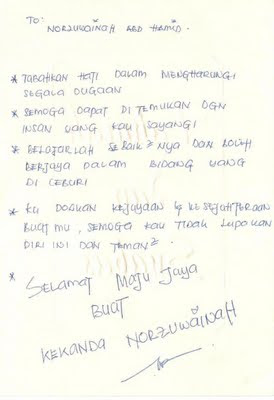 TO:
NORZUWAINAH ABD HAMID.
* TABAHKAN HATI DALAM MENGHARUNGI
SEGALA DUGAAN
* SEMOGA DAPAT DI TEMUKAN DGN
INSAN YANG KAU SAYANGI
* BELAJARLAH SEBAIK2 NYA DAN
BERJAYA DALAM BIDANG YANG
DI CEBURI
* KU DOAKAN KEJAYAAN & KESEJAHTERAAN
BUAT MU, SEMOGA KAU TIDAK LUPAKAN
DIRI INI DAN TEMAN2.
* SELAMAT MAJU JAYA
BUAT
KEKANDA NORZUWAINAH